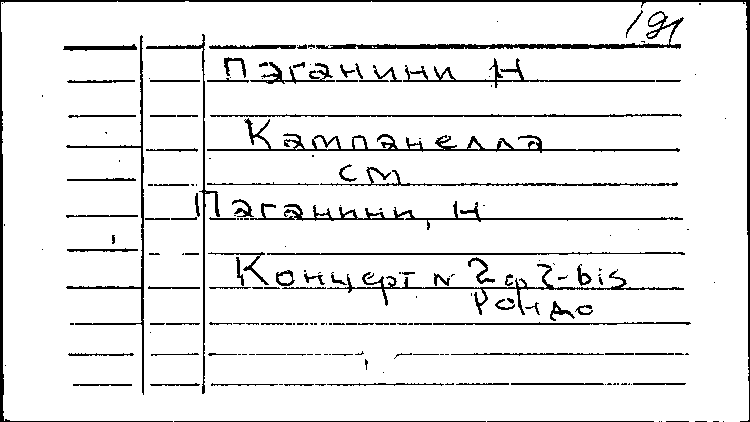 191
Паганини Н
Кампанелла
см
Паганини, Н
Концерт N 2 ор 2-bis
Рондо